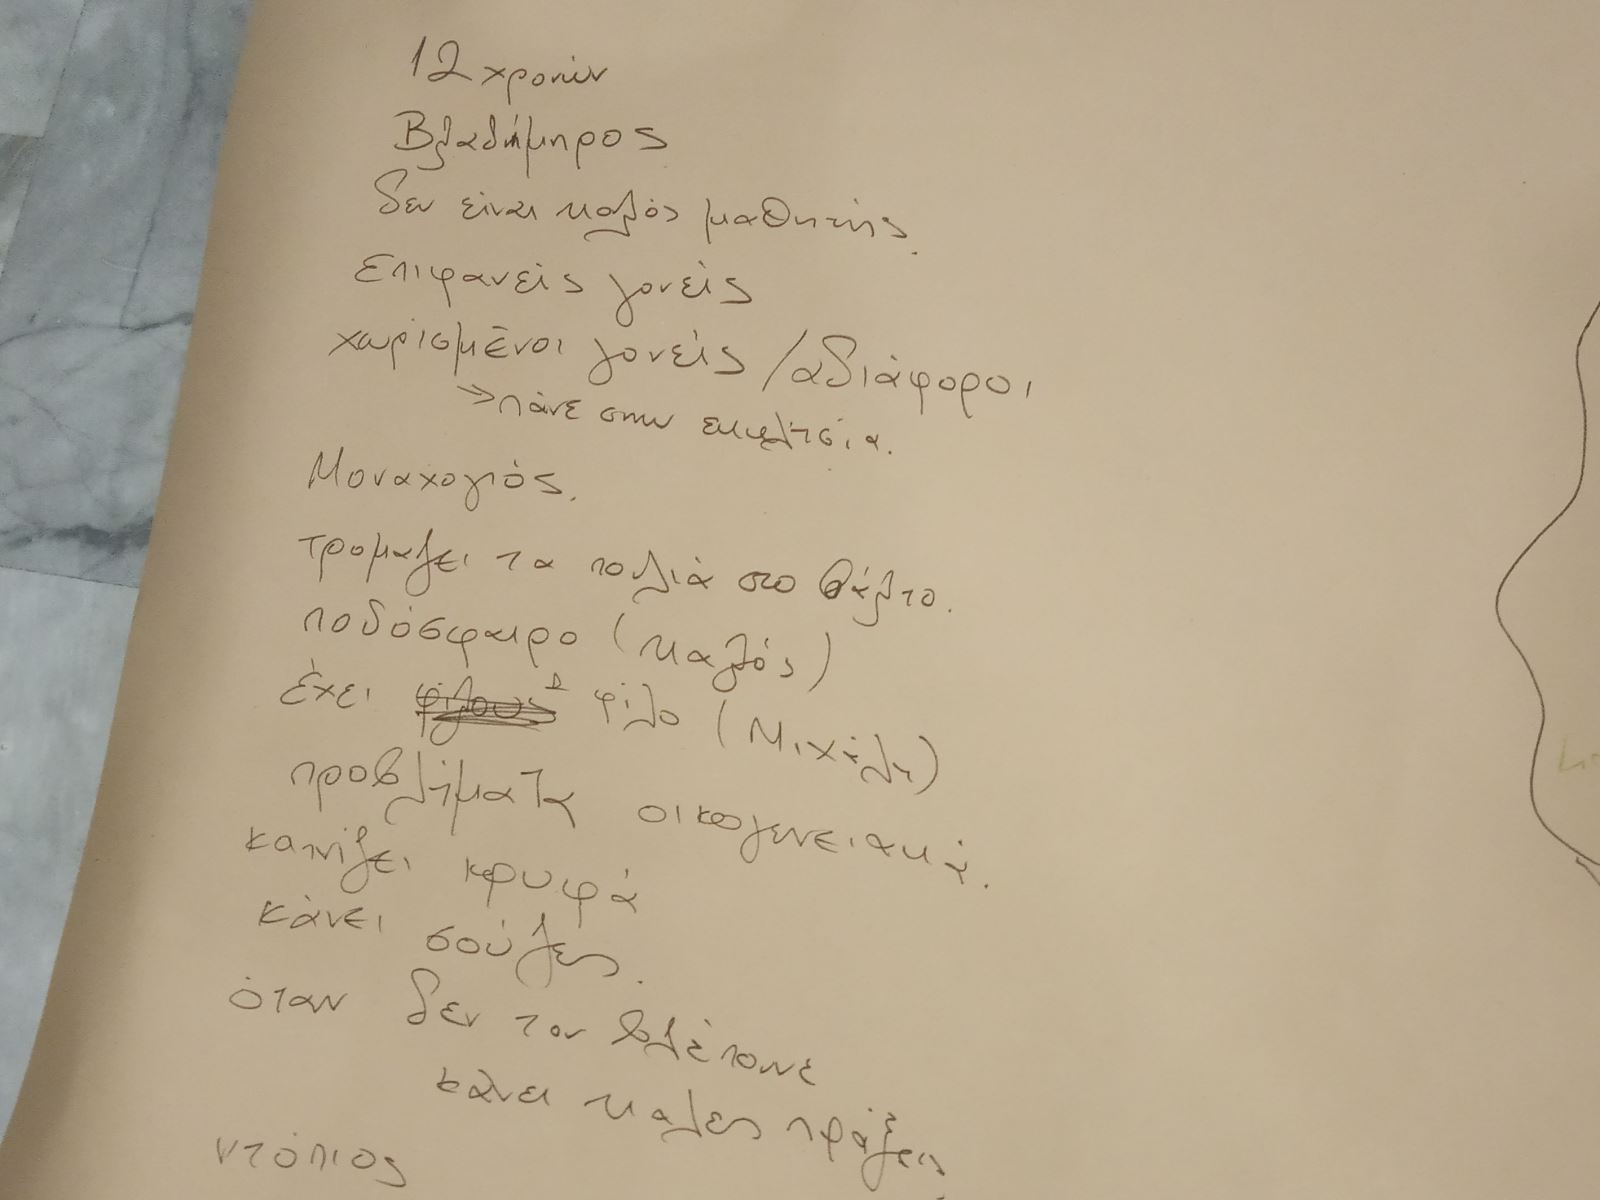 12 χρονών
Βλαδήμηρος
δεν είναι καλός μαθητής.
Επιφανείς γονείς
χωρισμένοι γονείς / αδιάφοροι
→ πάνε στην εκκλησία.
Μοναχογιός.
τρομάζει τα πουλιά στο βάλτο.
ποδόσφαιρο (καλός)
έχει 1 φίλο (Μιχάλη)
προβλήματα οικογενειακά.
καπνίζει κρυφά
κάνει σούζες.
όταν δεν τον βλέπουνε
κάνει καλές πράξεις
ντόπιος